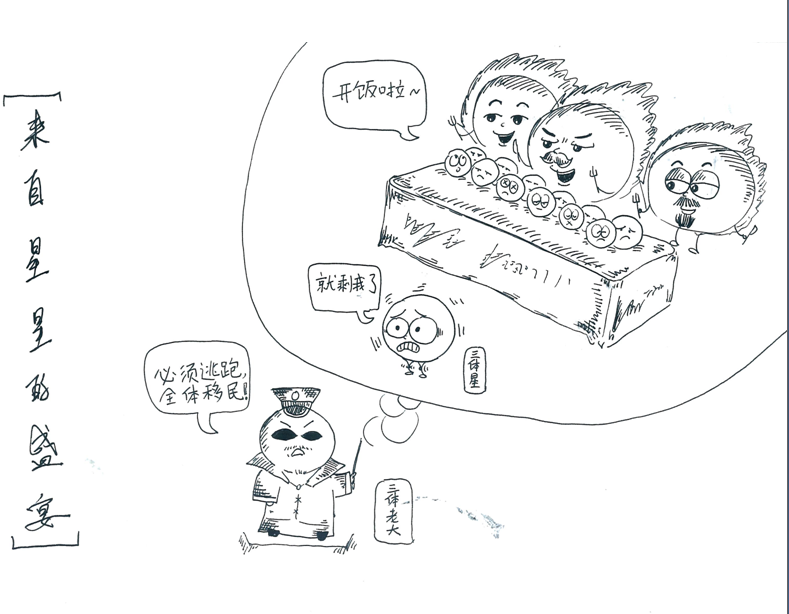 来自星星的盛宴
开饭啦~
就剩我了
三体星
必须逃跑,
全体移民!
三体老大